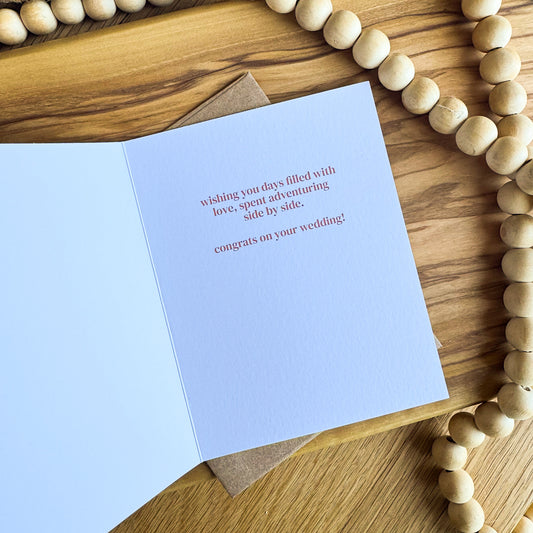 wishing you days filled with
love, spent adventuring
side by side.
congrats on your wedding!